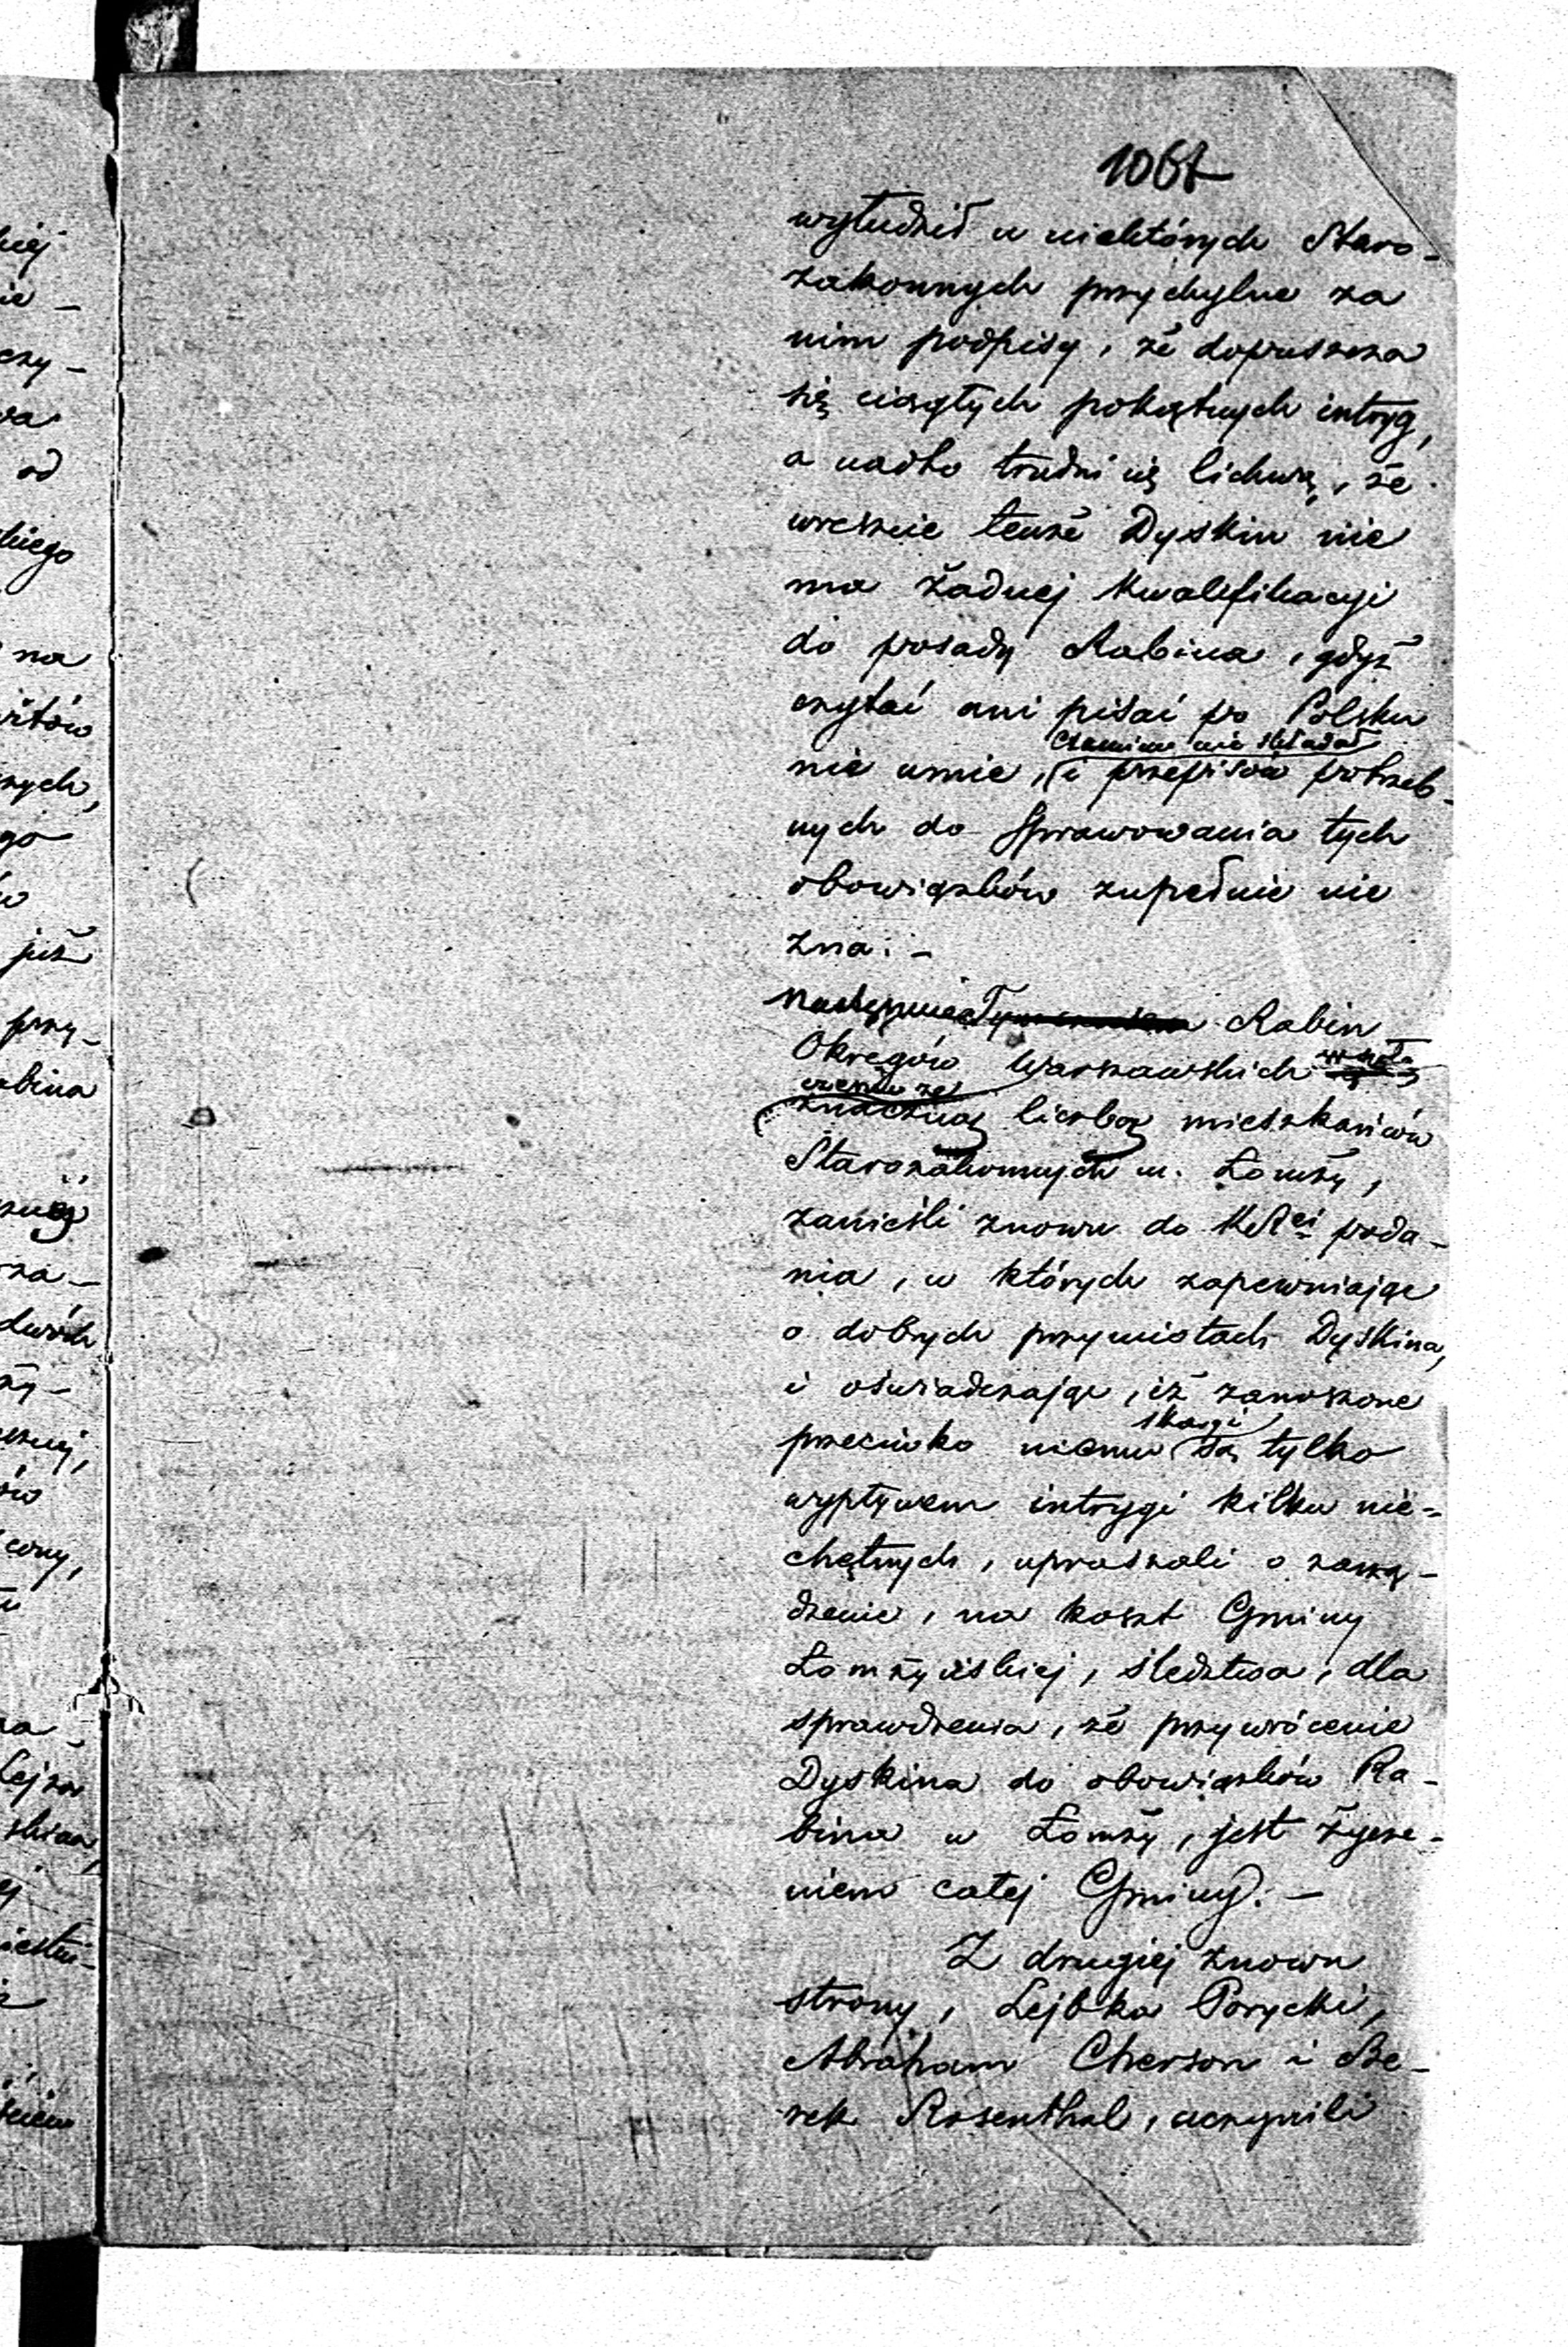 1067
wyłudził u niektórych Staro-
zakonnych przychylne za
nim podpisy, że dopuszcza
się ciągłych pokątnych intryg,
a nadto trudni się lichwą, że
wreszcie tenże Dyskin nie
ma żadnej kwalifikacyi
do posady Rabina, gdyż
czytać ani pisać po Polsku
examinu nie składał
nie umie, i przepisów potrzeb-
nych do sprawowania tych
obowiązków zupełnie nie
zna. -
Następnie Rabin
Okręgów Warszawskich
znaczną liczbą mieszkańców
Starozakonnych m. Łomży,
zanieśli znowu do KRei poda-
nia, w których zapewniając
o dobrych przymiotach Dyskina,
i oświadczając, iż zanoszone
skargi
przeciwko niemu są tylko
wypływem intrygi kilku nie-
chętnych, upraszali o zarzą-
dzenie, na koszt Gminy
Łomżyńskiej, śledztwa, dla
sprawdzenia, że przywrócenie
Dyskina do obowiązków Ra-
bina w Łomży, jest życze-
niem całej Gminy. -
Z drugiej znowu
strony, Lejbka Porycki,
Abraham Cherson i Be-
rek Rosenthal, uczynili